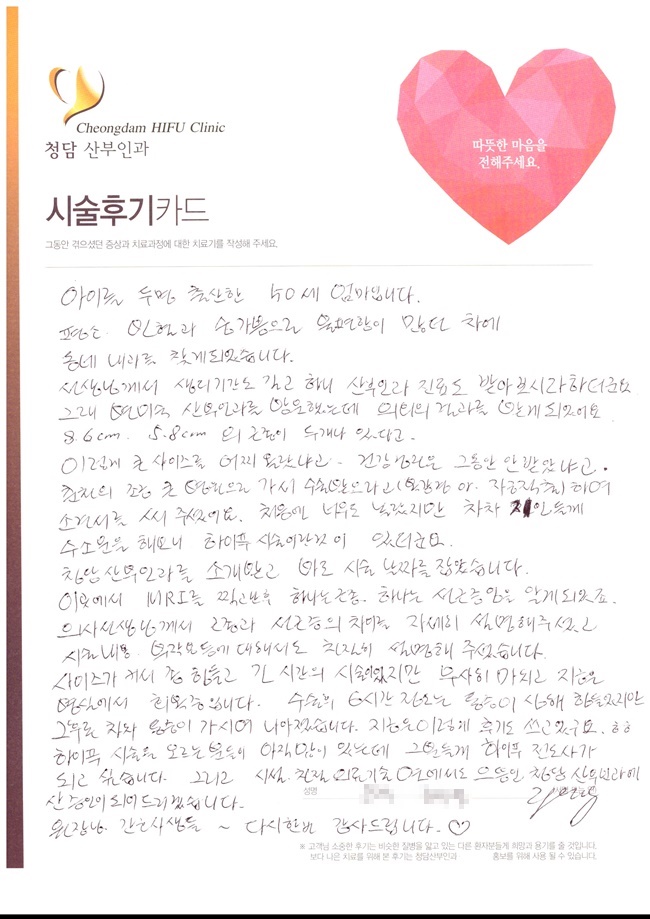 Cheongdam HIFU Clinic
청담 산부인과
따뜻한 마음을
전해주세요.
시술후기카드
그동안 겪으셨던 증상과 치료과정에 대한 치료기를 작성해 주세요.
아이를 두명 출산한 40세 엄마입니다.
평소 빈혈과 숨가쁨으로 불편함이 많던 차에
동네 내과를 찾게되었습니다.
선생님께서 생리기간도 길고 하니 산부인과 진료도 받아보시라 하더군요
그래 산부인과를 방문했는데 결과를 알게 되었어요
8.6cm, 5.8cm 의 근종이 두개나 있다고.
이렇게 큰 사이즈를 어찌 몰랐냐고. 건강검진은 그동안 안받았냐고.
좀 큰 병원으로 가서 수술받으라고 하며
소견서를 써 주셨어요. 처음엔 너무도 놀랐지만 차차 지인들께
수소문을 해보니 하이푸 시술이란것이 있더군요.
청담산부인과를 소개받고 바로 시술 날짜를 잡았습니다.
이곳에서 MRI를 찍고난후 하나는 근종, 하나는 선근증임을 알게되었죠.
의사선생님께서 근종과 선근증의 차이를 자세히 설명해주셨고
시술내용, 부작용등에 대해서도 친절히 설명해 주셨습니다.
사이즈가 커서 좀 힘들고 긴 시간의 시술이었지만 무사히 마치고 지금은
병실에서 회복중입니다. 수술후 6시간 정도는 통증이 상당해 힘들었지만
그후로 차차 통증이 가시며 나아졌습니다. 지금은 이렇게 후기도 쓰고있구요. ㅎㅎ
하이푸 시술을 모르는 분들이 아직 많이 있는데 그분들께 하이푸 전도사가
되고 싶습니다. 그리고 시설, 친절, 의료기술 면에서도 으뜸인 청담 산부인과에
산증인이 되어드리겠습니다.
성명
원장님, 간호사샘들 ~ 다시한번 감사드립니다. ♡
※ 고객님 소중한 후기는 비슷한 질병을 앓고 있는 다른 환자분들게 희망과 용기를 줄 것입니다.
보다 나은 치료를 위해 본 후기는 청담산부인과 홍보를 위해 사용 될 수 있습니다.